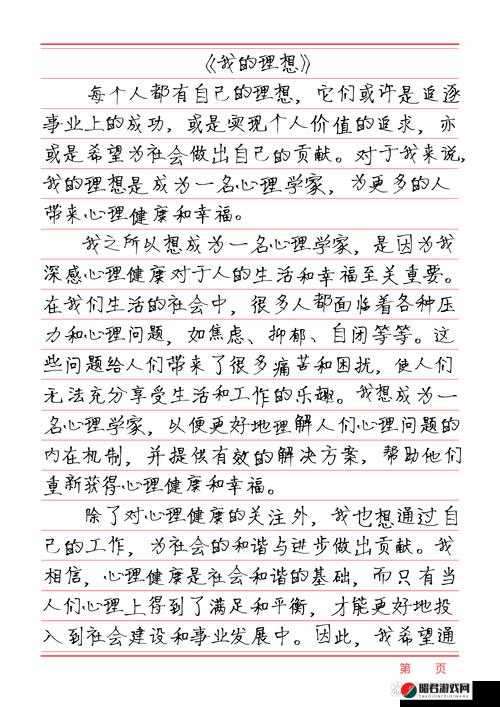 《我的理想》
每个人都有自己的理想，它们或许是追逐
事业上的成功，或是实现个人价值的追求，亦
或是希望为社会做出自己的贡献。对于我来说，
我的理想是成为一名心理学家，为更多的人
带来心理健康和幸福。
我之所以想成为一名心理学家，是因为我
深感心理健康对于人的生活和幸福至关重要。
在我们生活的社会中，很多人都面临着各种压
力和心理问题，如焦虑、抑郁、自闭等等。这
些问题给人们带来了很多痛苦和困扰，使人们
无法充分享受生活和工作的乐趣。我想成为一
名心理学家，以便更好地理解人们心理问题的
内在机制，并提供有效的解决方案，帮助他们
重新获得心理健康和幸福。
除了对心理健康的关注外，我也想通过自
己的工作，为社会的和谐与进步做出贡献。我
相信，心理健康是社会和谐的基础，而只有当
人们心理上得到了满足和平衡，才能更好地投
入到社会建设和事业发展中。因此，我希望通
第 页
昭君游戏网